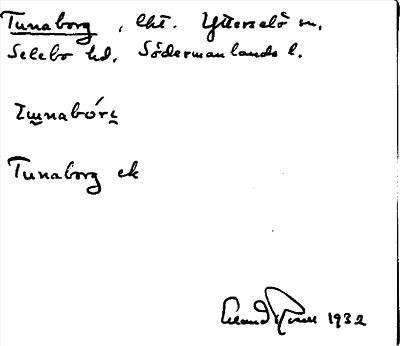 Tunaborg, lht. Ytterselö sn,
Selebo hd, Södermanlands l.
Tunabórj
Tunaborg ek
Erland Rosell 1932